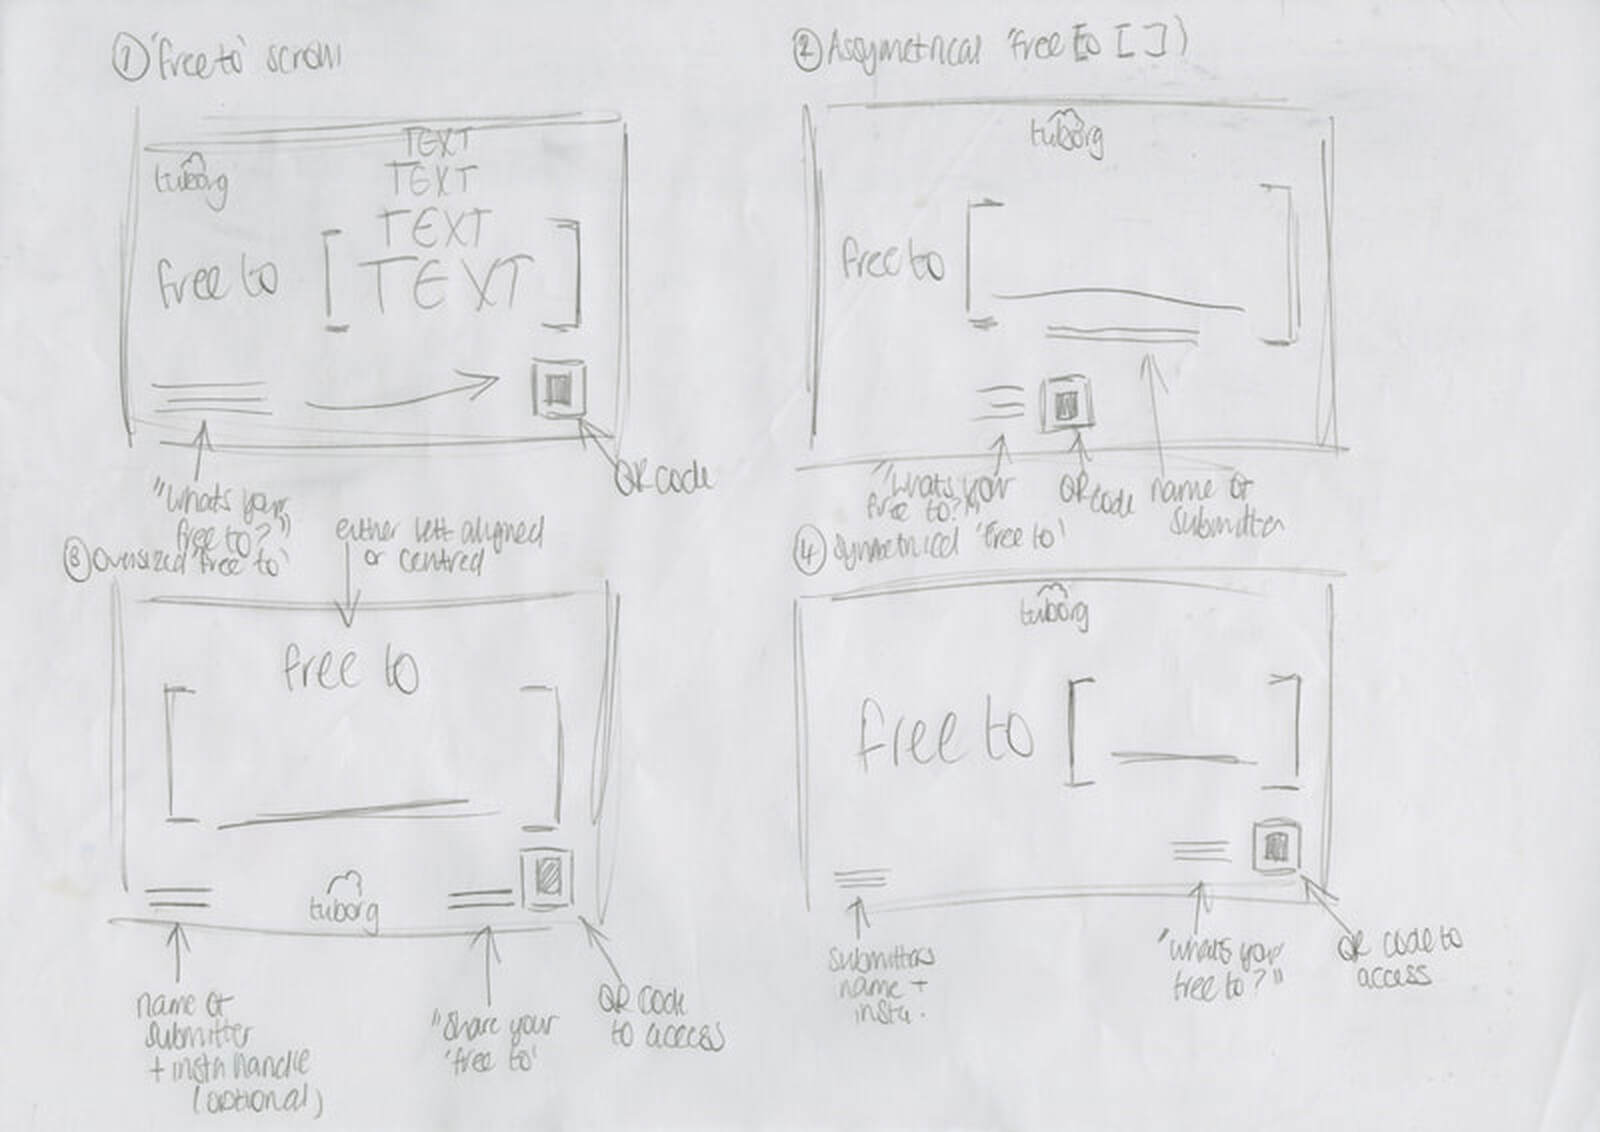 ① 'free to' scroll
tuborg
TEXT
TEXT
TEXT
TEXT
free to [ ]
"whats your
free to?"
QR code
② Assymetrical 'free to [ ])
tuborg
free to [ ]
"whats your
free to?"
QR code
name of
submitter
③ Oversized 'free to'
either left aligned
or centred
free to
[ ]
tuborg
name of
submitter
+ insta handle
(optional)
"Share your
'free to'
QR code
to access
④ Symmetrical 'free to'
tuborg
free to [ ]
submitters
name +
insta.
"whats your
free to?"
QR code to
access